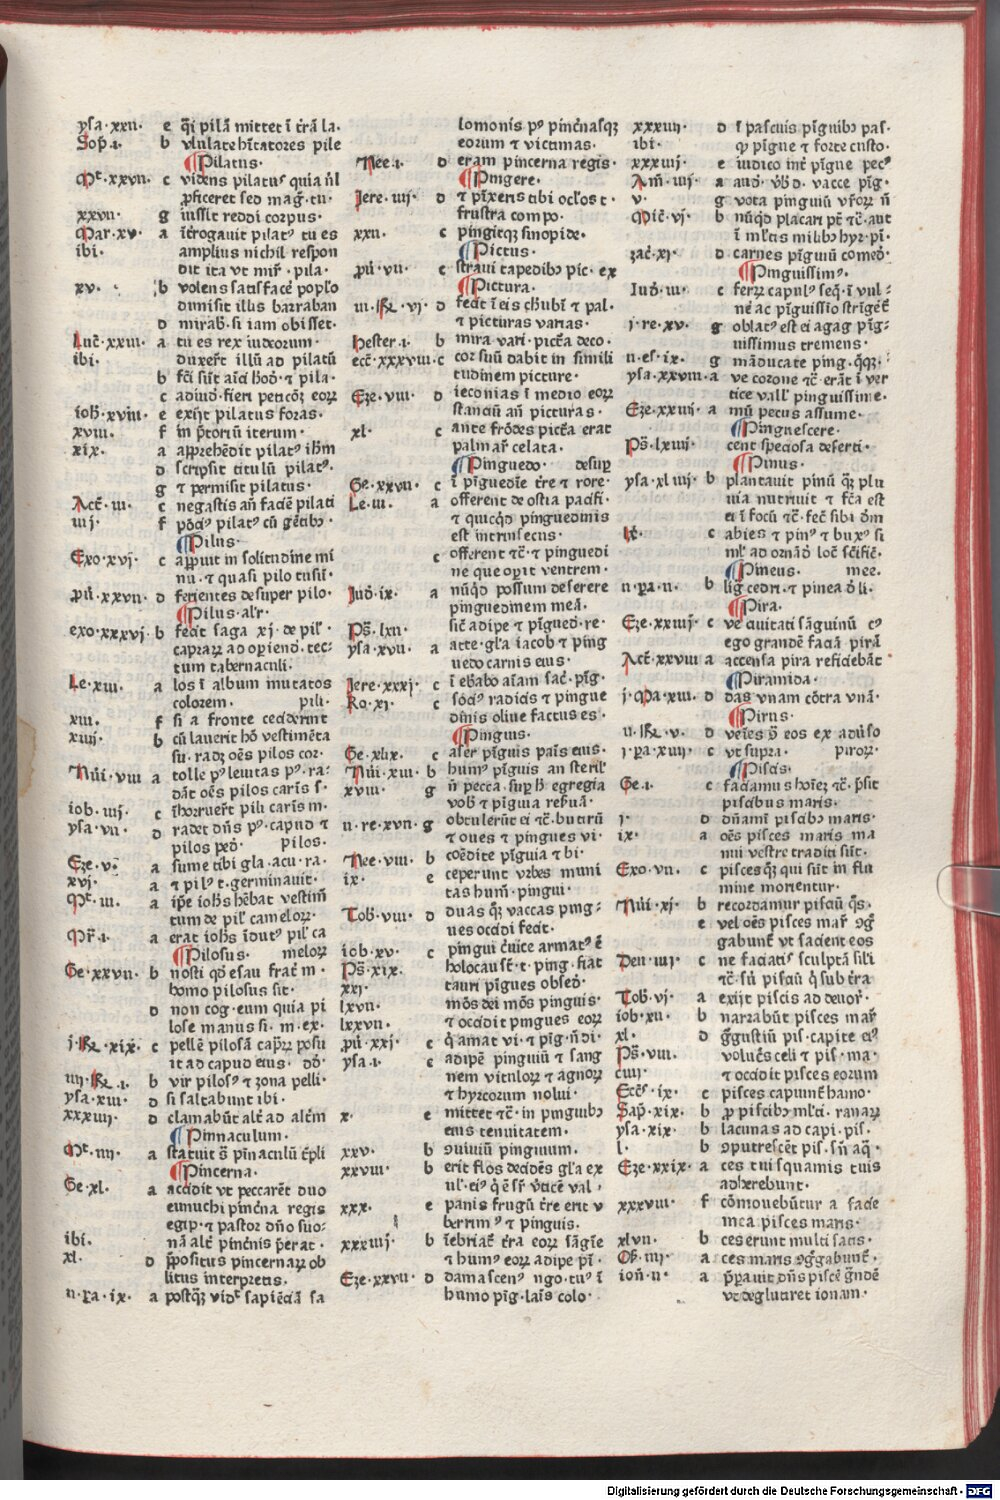 ysa·xxii· e q̄i pilā mittet ī t̄rā la·
Sop̄·i· b vlulate hītatores pile
¶Pilatus·
Mt·xxvii· c videns pilatus quia n̄l
ꝓficeret sed mag̅·tu·
xxvii· g iussit reddi corpus·
Mar·xv· a ītrogauit pilatꝰ tu es
ibi· amplius nichil respon
dit ita vt mir̄·pila·
xv· b volens satisfacē poplo
dimisit illis barraban
d mirab̄·si iam obisset·
Luc̄·xxiii· a tu es rex iudeorum·
ibi· duxer̄t illū ad pilatū
b fc̄i sūt aīci ħoð·⁊ pila·
c adiuð·fieri peticōꝫ eoꝝ
ioh̄·xviii· e exijt pilatus foras·
xviii· f in p̄toriū iterum·
xix· a apprehēdit pilatꝰ ihm
d scripsit titulū pilatꝰ·
g ⁊ permisit pilatus·
Act̄·iii· c negastis añ faciē pilati
iiij· f pōciꝰ pilatꝰ cū gētibꝫ·
¶Pilus·
Exo·xvj· c apparuit in solitudine mi
nu·⁊ quasi pilo tusū·
ꝓū·xxvii· d ferientes desuper pilo·
¶Pilus·al'r·
exo·xxxvj b fecit saga xj·de pil'·
capraꝝ ad opienð·tec·
tum tabernaculi·
Le·xiii· a los ī album mutatos
colorem· pili·
xiii· f si a fronte ceciderint
xiiij· b cū lauerit hō vestimēta
su·radꝫ oēs pilos cor·
Nūi·viii a tolle pꝰ leuitas pꝰ·ra·
dāt oēs pilos carīs s·
iob·iiij· c īhorruer̄t pili carīs m·
ysa·vii· d radet dn̄s pꝰ·caput ⁊
pilos peð· pilos·
Eze·v· a sume tibi gla·acu·ra·
xvj· a ⁊ pilꝰ t·germinauit·
Mt·iii· a ip̄e ioh̄s hēbat vestim̄
tum de pil' cameloꝝ·
Mr̄·i· a erat ioh̄s īdutꝰ pil' ca
¶Pilosus· meloꝝ
Ge·xxvii· b nosti qð esau frat̄ m·
homo pilosus sit·
d non cog·eum quia pi
lose manus si·m·ex·
j·Re·xix· c pellē pilosā cap̄ꝝ posu
it ad caput eius· dō·
iiij·Re·i· b vir pilosꝰ ⁊ zona pelli·
ysa·xiii· d si saltabunt ibi·
xxxiiij· d clamabūt alt̄ ad alt̄m
¶Pinnaculum·
Mt·iiij· a statuit s̄ pīnaculū t̄pli
¶Pincerna·
Ge·xl· a accidit vt peccarēt duo
eunuchi pīnc̄na regis
egip·⁊ pastor dn̄o suo·
ibi· nā alt̄ pinc̄nis p̄erat·
xl· d p̄positus pincernaꝝ ob
litus interpretis·
ii·pa·ix· a postq̄ꝫ vidt̄ sapiēciā sa
lomonis pꝰ pinc̄nasqꝫ
eorum ⁊ victimas·
Nee·i· d eram pincerna regis·
¶Pingere·
Jere·iiij· d ⁊ pīxeris tibi oclos t·
frustra compo·
xxii· c pingitqꝫ sinopide·
¶Pictus·
ꝓū·vii· c straui tapedibꝫ pic·ex
¶Pictura·
iii·Re·vj· d fecit ī eis cħubī ⁊ pal·
⁊ picturas varias·
Hester·i· b mira vari·pict̄a deco·
ecc̄·xxxviii·c cor suū dabit in simili
tudinem picture·
Eze·viii· d ieconias ī medio eoꝝ
stanciū añ picturas·
xl· c ante frōdes pict̄a erat
palmar̄ celata·
¶Pinguedo· desup
Ge·xxvii· c ī pīguedīe t̄re ⁊ rore·
Le·iii· a offerent de ostia pacifi·
⁊ quicq̄d pinguedinis
est intrinsecus·
c offerent ⁊c̄·⁊ pinguedi
ne que opit ventrem·
Juð·ix· a nūqð possum deserere
pinguedinem meā·
Ps̄·lxii· sic̄ adipe ⁊ pīgueð·re·
ysa·xvii· a atte·gl'a iacob ⁊ ping
uedo carnis eius·
Jere·xxxj· c ī eħabo aīam sac̄·pīg·
Ro·xj· c sōciꝰ radicis ⁊ pingue
dinis oliue factus es·
¶Pinguis·
Ge·xlix· c aser pīguis panis eius·
Nūi·xiii· b humꝰ pīguis an steril'
xviii· g n̄ pecca·sup ħ egregia
vob̄ ⁊ pīguia reb̄uā·
ii·re·xvii· g obtuler̄ūt ei ⁊c̄·butirū
⁊ oues ⁊ pingues vi·
Nee·viii· b coēdite pīguia ⁊ bi·
ix· e ceperunt vrbes muni
tas hum̄·pingui·
Tob̄·viii· d duas q̄ꝫ vaccas ping·
ues occidi fecit·
iob·xv· c pingui c̄uice armatꝰ ē
Ps̄·xix· holocaust̄·t·ping·fiāt
xxj· tauri pīgues obseð·
lxvii· mōs dei mōs pinguis·
lxxvii· ⁊ occidit pīngues eoꝝ
ꝓū·xxj· c q̄ amat vi·⁊ pīg·ñ di·
ysa·i· c adipē pinguiū ⁊ sang
nem vituloꝝ ⁊ agnoꝝ
⁊ hyrcorum nolui·
x· e mittet ⁊c̄·in pinguibꝫ
eius tenuitatem·
xxv· b ↄuiuiū pinguium·
xxviii· b erit flos decidēs gl'a ex
ul'·eiꝰ q̄ ē sr̄ v̄ticē val·
xxx· e panis frugū t̄re erit v
berrimꝰ ⁊ pinguis·
xxxiiij· b īebriat̄ t̄ra eoꝝ sāgīe
⁊ humꝰ eoꝝ adipe pī·
Eze·xxvii· d damascenꝰ ngo·tuꝰ ī
humo pīg·lanis colo·
xxxiiij· d ī pascuis pīguibꝫ pas·
ibi· qꝫ pīgue ⁊ forte custo·
xxxiiij· e iudico int̄ pīgue pecꝰ
Am̄·iiij· a auð·v̄b̄ð·vacce pīg·
v· g vota pinguiū vr̄oꝝ n̄
Mic̄·vj· b nūqð placari pt̄ ⁊c̄·aut
ī ml'tis milibꝫ hyr·pī·
zac̄·xj· d carnes pīguiū comeð·
¶Pinguissimꝰ·
Iuð·iii· c ferꝝ capulꝰ seq̄·ī vul·
nē ac pīguissīo strīgēt̄
j·re·xv· g oblatꝰ est ei agag pīg·
uissimus tremens·
ii·es·ix· g māducate ping·q̄qꝫ·
ysa·xxviii·a ve corone ⁊c̄·erāt ī ver
tice vall' pinguissime·
Eze·xxiiij· a mū pecus assume·
¶Pinguescere·
Ps̄·lxiiij· cent speciosa deserti·
¶Pinus·
ysa·xliiij· b plantauit pinū q̄ꝫ plu
uia nutriuit ⁊ fc̄a est
ei ī focū ⁊c̄·fec̄ sibi dm̄
lx̄· c abies ⁊ pinꝰ ⁊ buxꝰ si
ml' ad ornāð loc̄ sc̄ific̄·
¶Pineus· mee·
ii·pa·ii· b lig̅ cedri·⁊ pinea d̄ li·
¶Pira·
Eze·xxiiij· c ve ciuitati sāguinū cꝰ
ego grandē faciā pirā
Act̄·xxviii a accensa pira reficiebāt
¶Piramida·
j·Ma·xiii· d das vnam cōtra vnā·
¶Pirus·
ii·Re·v· d veīes p̄ eos ex aduso
j·pa·xiiij· c vt supra· piroꝝ·
¶Piscis·
Ge·i· c faciamus hoīeꝫ ⁊c̄·p̄sit
piscibus maris·
j· d dn̄amī piscibꝫ maris·
ix· a oēs pisces maris ma
nui vestre traditi sūt·
Exo·vii· c pisces qꝫ qui sūt in flu
mine morientur·
Nūi·xj· b recordamur pisciū q̄s·
e vel oēs pisces mar̄ ↄg̅
gabunt̄ vt sacient eos
Deu·iiij· c ne faciatis sculptā sil'i
⁊c̄·sū pisciū q̄ sub t̄ra
Tob̄·vj· a exijt piscis ad deuor̄·
iob·xii· b narrabūt pisces mar̄
xl· d g̅gustiū pis·capite eiꝰ
Ps̄·viii· voluc̄s celi ⁊ pis·ma·
ciiij· ⁊ occidit pisces eorum
Ecc̄s·ix· c pisces capiunt̄ hamo·
Sap̄·xix· b ꝓ piscibꝫ ml'ti·ranaꝝ
ysa·xix· b lacunas ad capi·pis·
l· b ↄputrescēt pis·sn̄ aq̄·
Eze·xxix· a ces tui squamis tuis
adherebunt·
xxxviii· f cōmouebūtur a facie
mea pisces maris·
xlvii· b ces erunt multi satis·
Os̄·iiij· a ces maris ↄg̅gabunt̄·
ion̄·ii· a p̄pauit dn̄s piscē g̅ndē
vt deglutiret ionam·
Digitalisierung gefördert durch die Deutsche Forschungsgemeinschaft · DFG